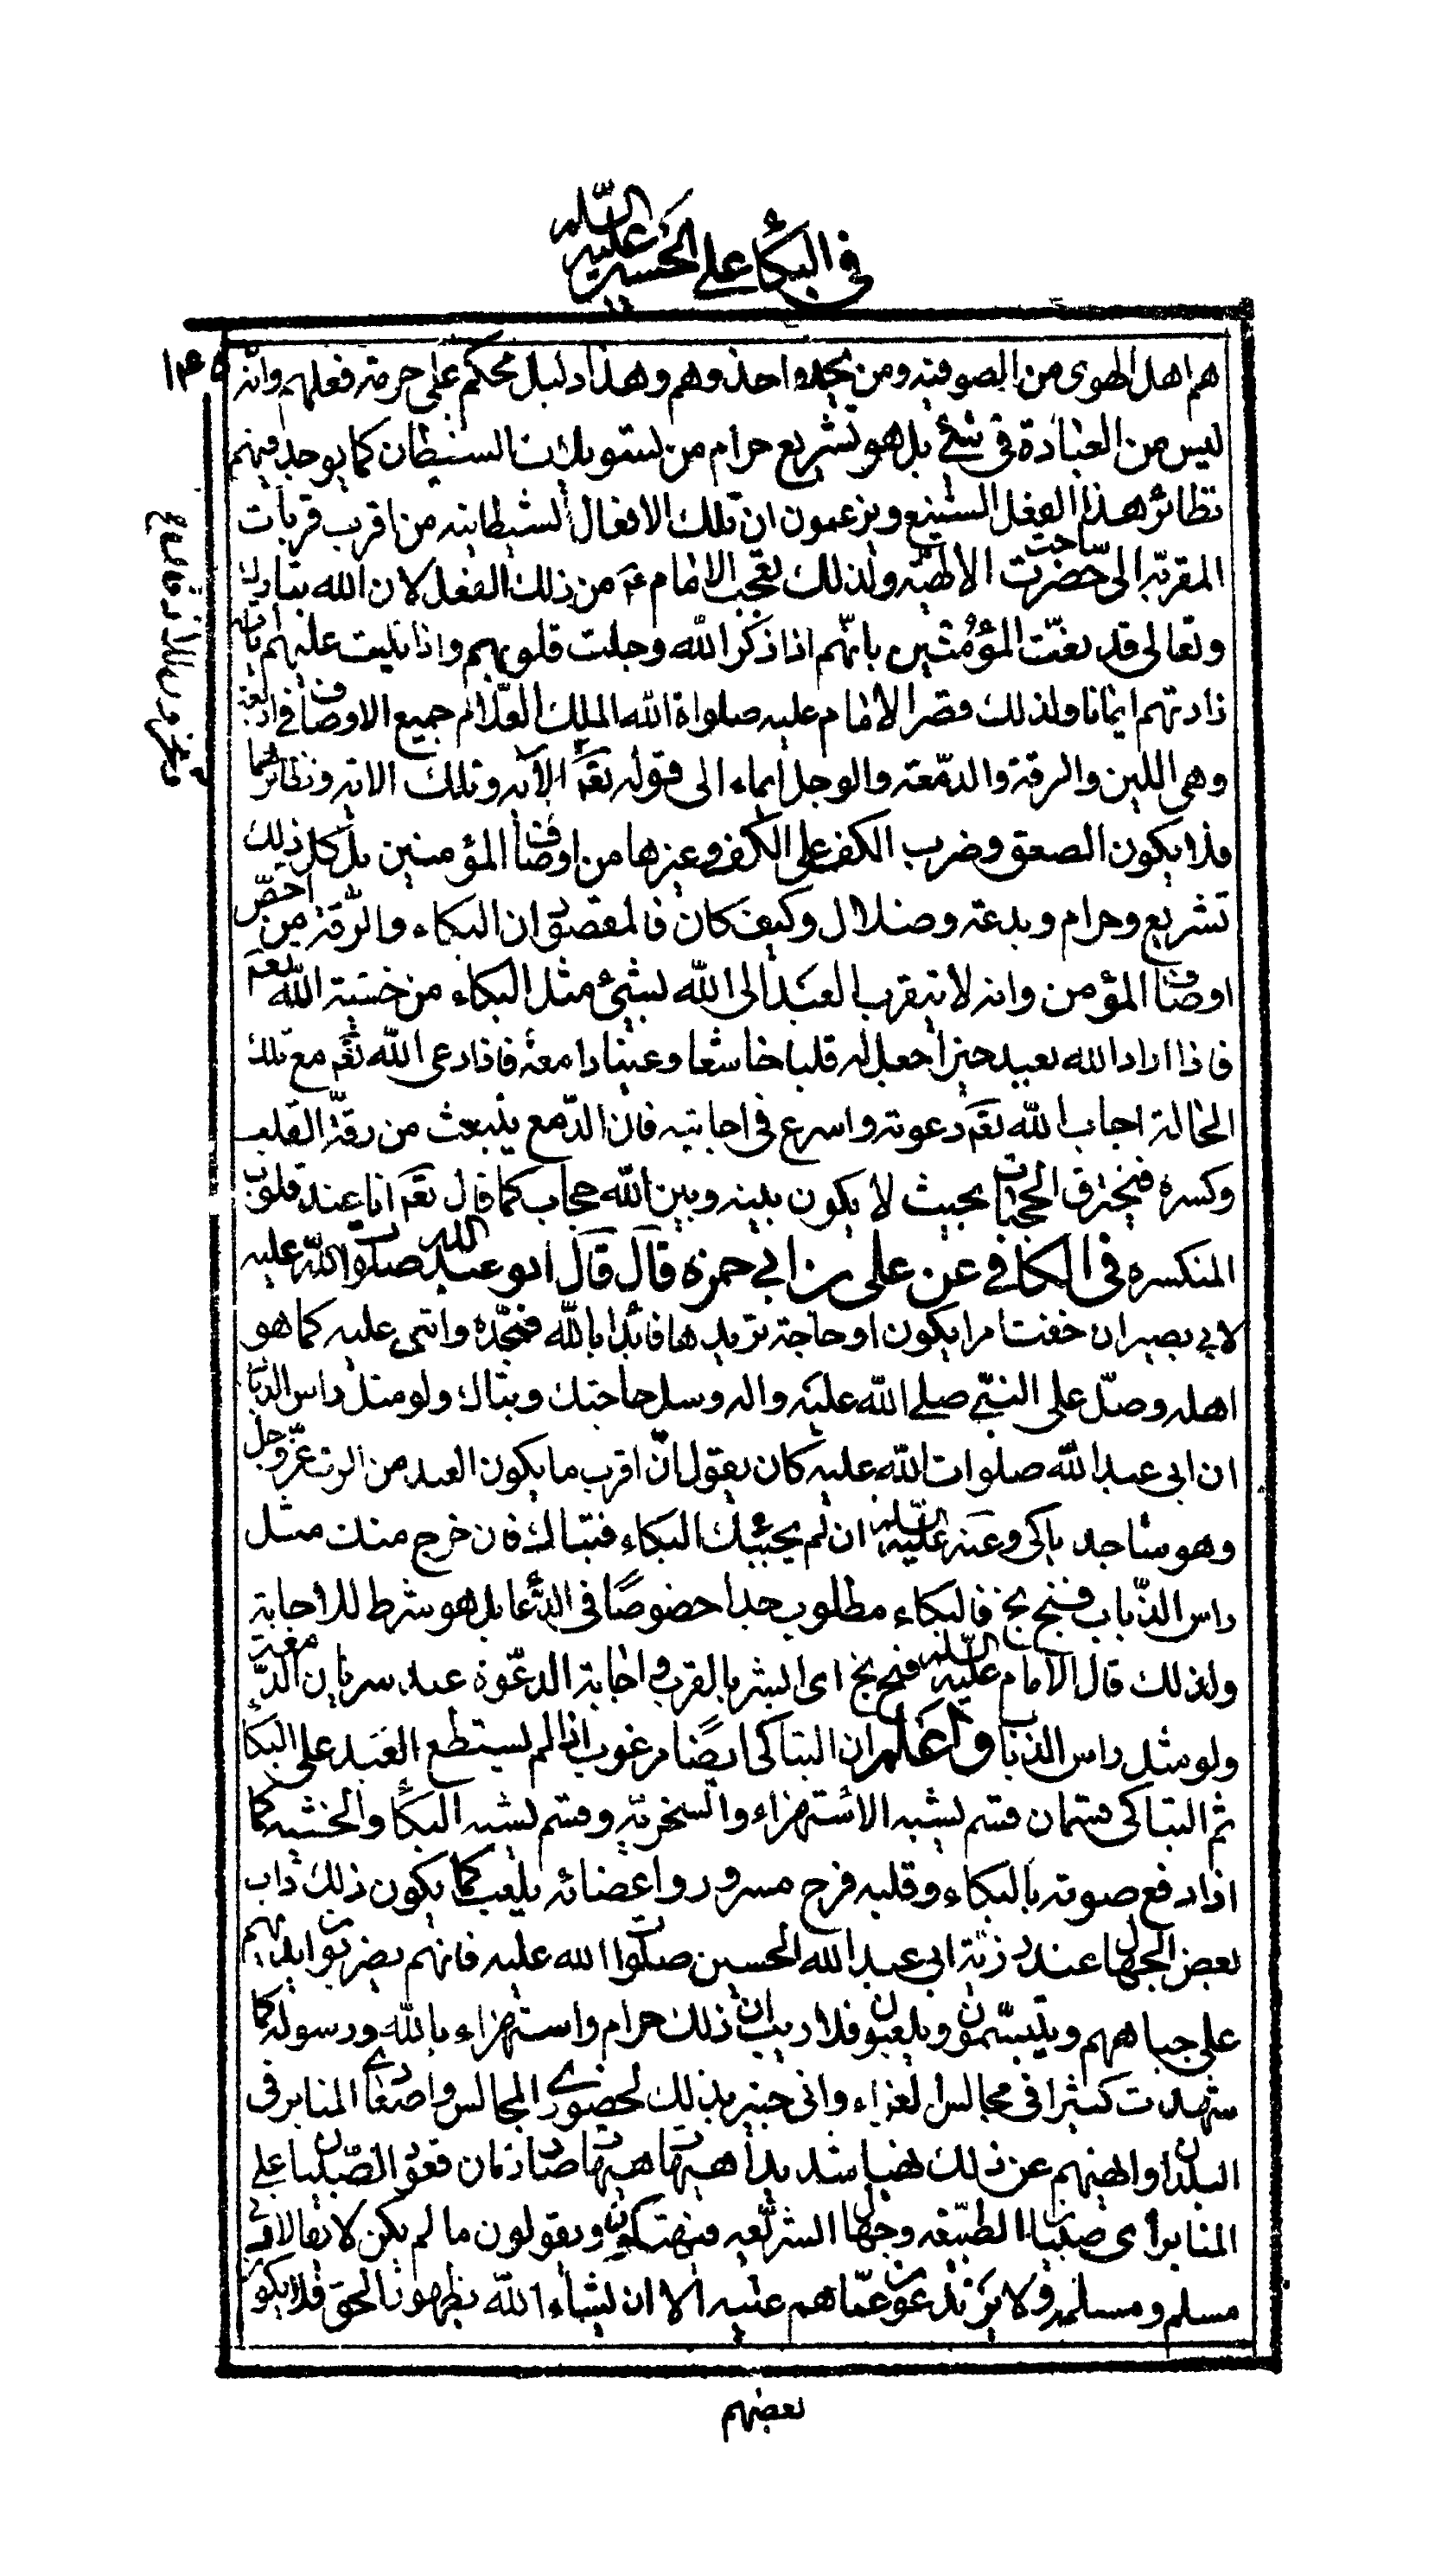 في البكاء على الحسين عليه السلام
١٣٥
هم اهل الهوى من الصوفيه ومن يحذو احذوهم وهذا دليل محكم على حرمة فعلهم وانّه
ليس من العبادة في شئ بل هو تشريع حرام من تسويلات الشيطان كما يوجد فيهم
نظائر هذا الفعل الشنيع ويزعمون ان تلك الافعال الشيطانيه من اقرب قربات
المقربة الى ساحت حضرت الالهيّه ولذلك تعجب الامام عم من ذلك الفعل لان الله تبارك
وتعالى قد نعت المؤمنين بانّهم اذا ذكر الله وجلت قلوبهم واذا تليت عليهم اياته
زادتهم ايمانا ولذلك قصر الامام عليه صلواة الله الملك العلّام جميع الاوصاف في اربعة
وهي اللين والرقة والدمّعة والوجل ايماء الى قوله تعم الآيه وتلك الايه ونظائرهما
فلا يكون الصعق وضرب الكف على الكف وغيرها من اوصاف المؤمنين بل كل ذلك
تشريع وحرام وبدعة وضلال وكيف كان فالمقصود ان البكاء والرّقة من اخصّ
اوصاف المؤمن وانه لا يتقرب العبد الى الله بشئ مثل البكاء من خشية الله تعم
فاذا اراد الله بعبد خيرا جعل له قلبا خاشعا وعينا دامعة فاذا دعى الله تعم مع تلك
الحالة اجاب الله تعم دعوته واسرع في اجابته فان الدّمع ينبعث من رقة القلب
وكسره فيخرق الحجبات بحيث لا يكون بينه وبين الله حجاب كما قال تعم انا عند قلوب
المنكسره في الكافي عن على بن ابي حمزه قال قال ابو عبد الله صلوات الله عليه
لابي بصير ان خفت امرا يكون او حاجة تريدها فابدا بالله فمجّده واثنى عليه كما هو
اهله وصلّ على النبيّ صلى الله عليه واله وسل حاجتك وتباك ولو مثل راس الذباب
ان ابي عبد الله صلوات الله عليه كان يقول انّ اقرب ما يكون العبد من الرب عزّ وجل
وهو ساجد باكى وعنه عليه السّلم ان لم يجيئك البكاء فتباك فان خرج منك مثل
راس الذّباب فبخ بخ فالبكاء مطلوب جدا خصوصًا في الدّعا بل هو شرط للاجابة
ولذلك قال الامام عليه السّلم فبخ بخ اى ابشر بالقرب واجابة الدعوة عند سريان الدّمعة
ولو مثل راس الذباب واعلم ان التباكى ايضا مرغوب اذا لم يستطع العبد على البكاء
ثم التباكى قسمان قسم يشبه الاستهزاء والسخرية وقسم يشبه البكاء والخشيه كما
اذا رفع صوته بالبكاء وقلبه فرح مسرور واعضائه يلعب كما يكون ذلك داب
بعض الجهال عند رزية ابي عبد الله الحسين صلوات الله عليه فانهم يضربون ايديهم
على جباههم ويتبسّمون ويلعبون فلا ريب ان ذلك حرام واستهزاء بالله ورسوله كما
شهدت كثيرا في مجالس العزاء وانى خبير بذلك لحضورى المجالس واصعادى المنابر في
البلدان وانهيهم عن ذلك نهيا شديدا هيهات هيهات صار زمان قعود الصّبيان على
المنابر اى صبيان الطبّيعه وجهال الشريّعه فيهتكون ويقولون ما لم يكن لا يقالا في
مسلم ومسلمه ولا يرتدعون عمّا هم عليه الا ان يشاء الله بظهور الحق فلا يكون
بعضهم